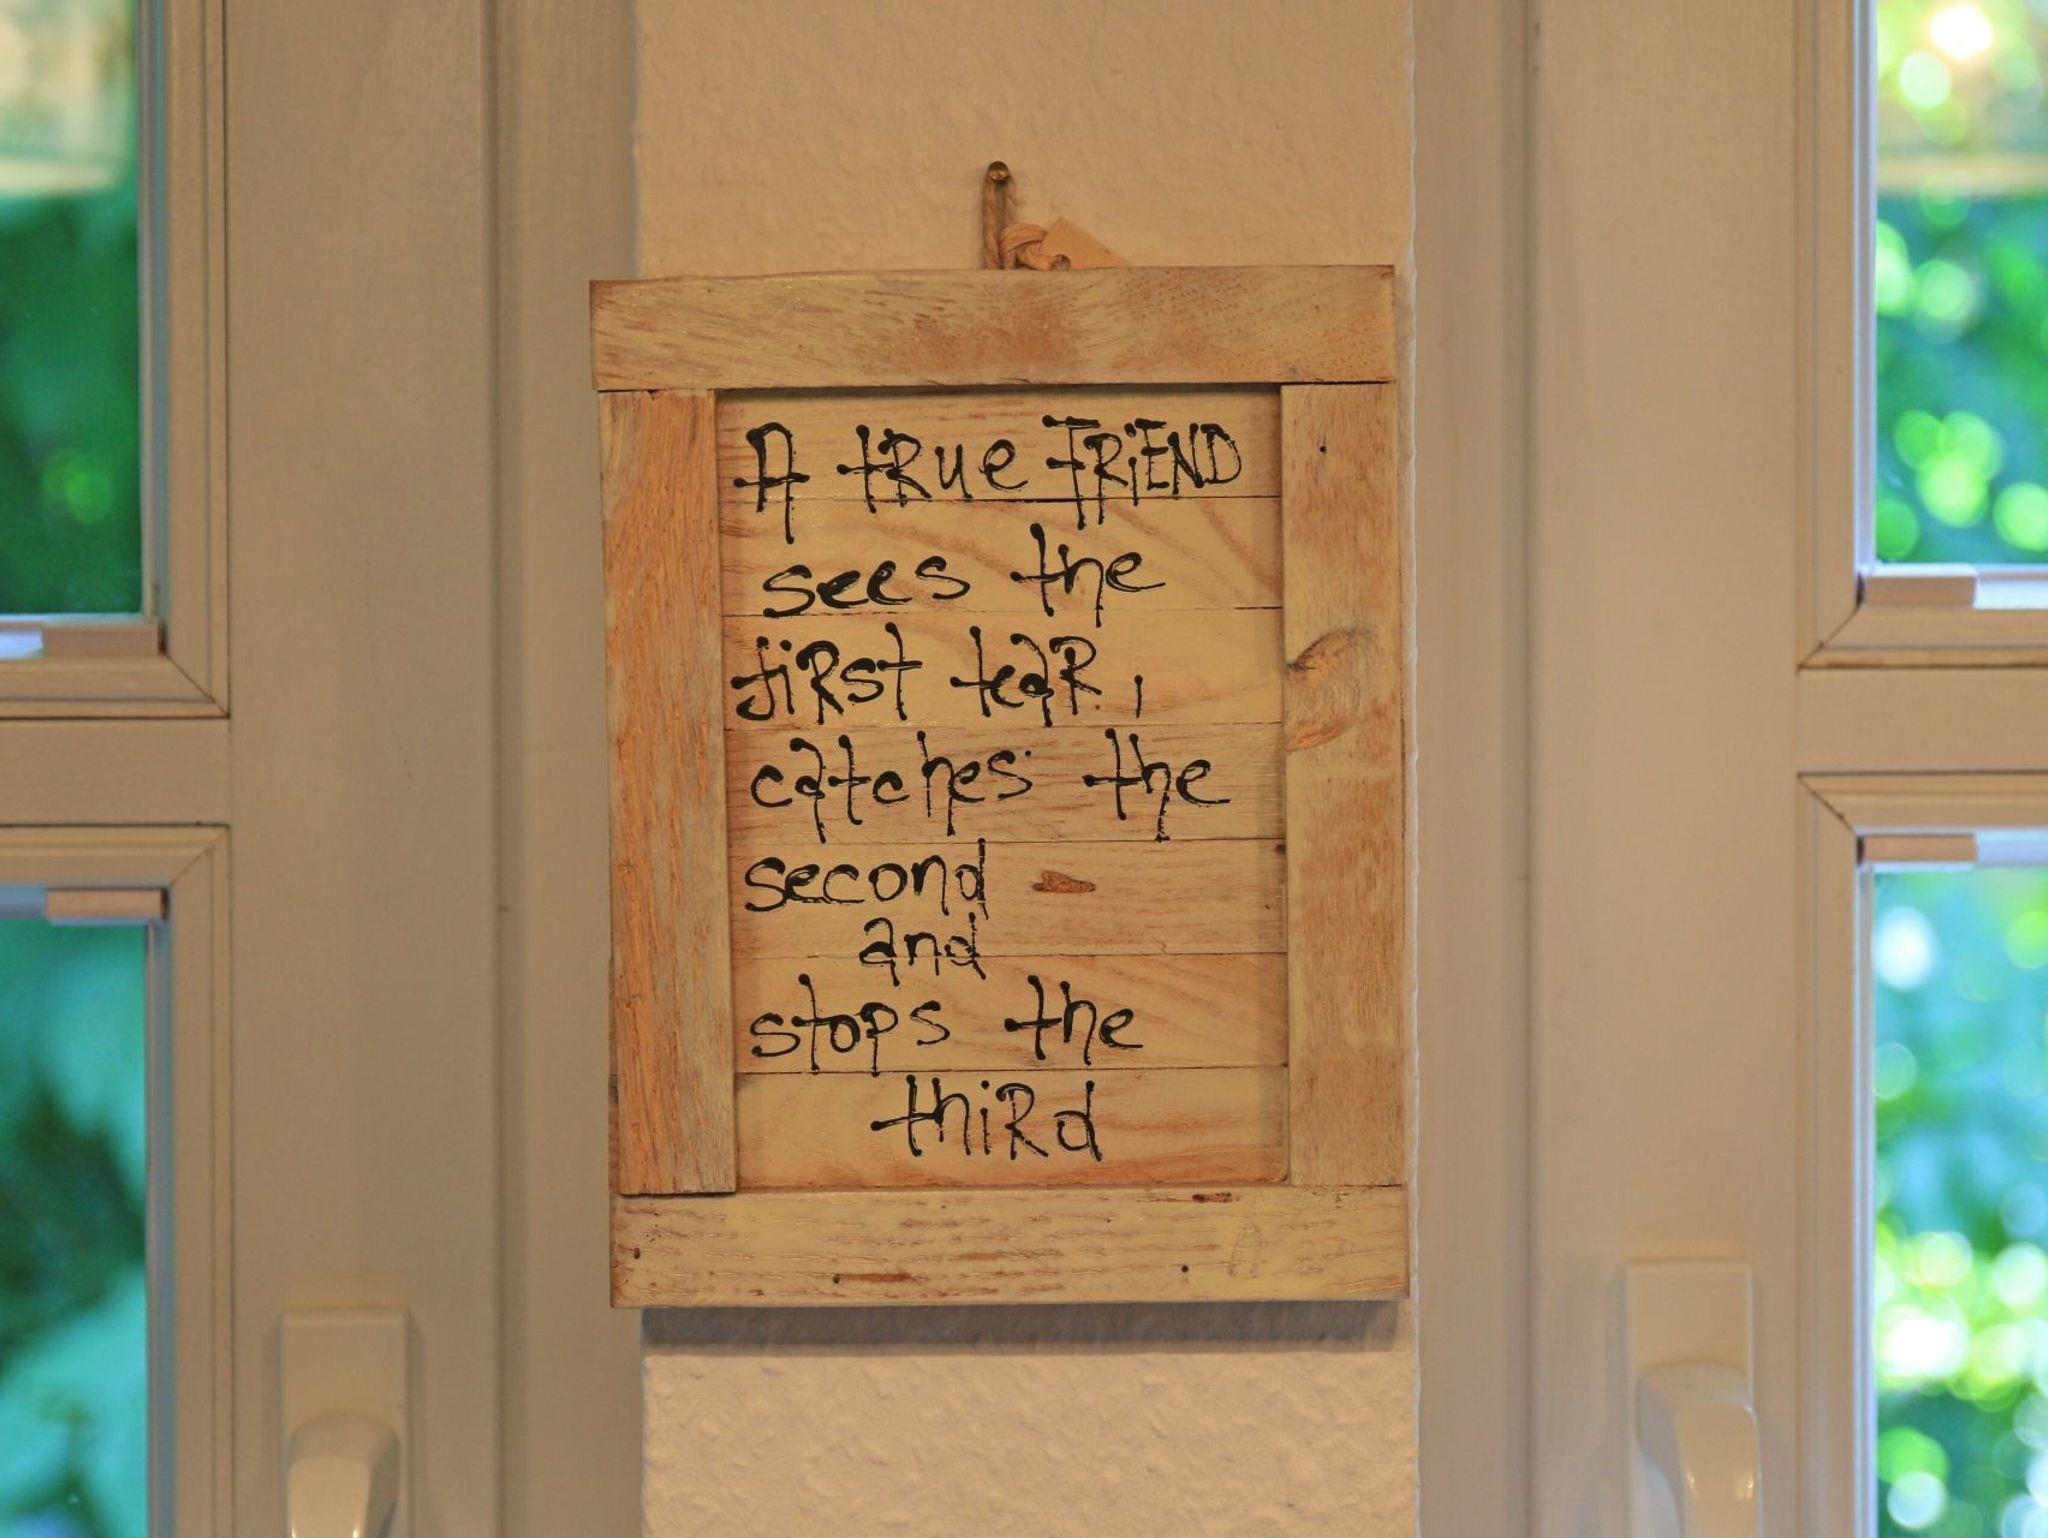 A tRue FRiEND
sees the
fiRst teaR. ,
catches the
second
and
stops the
thiRd